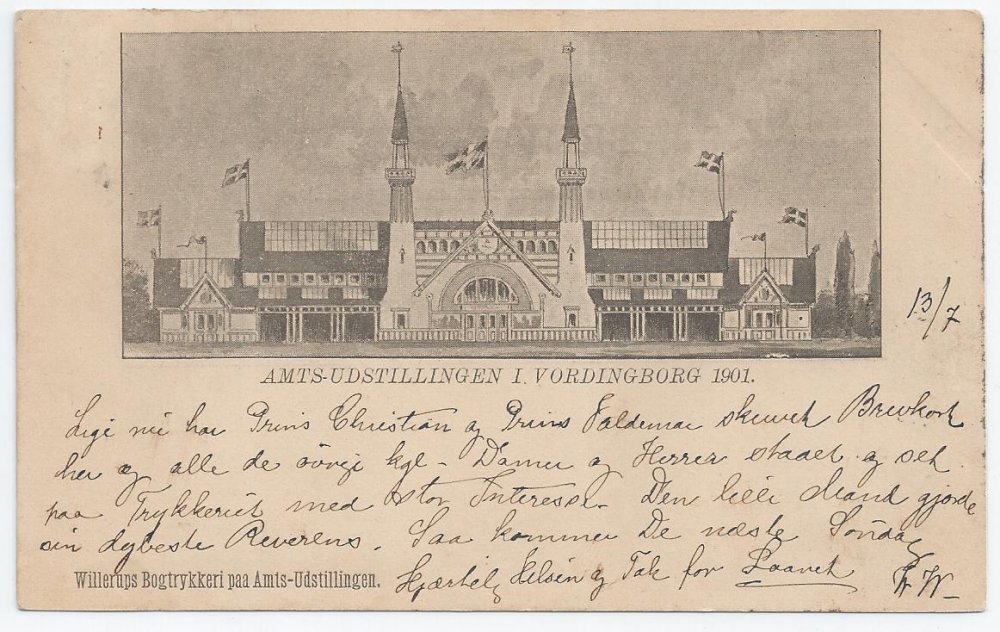 AMTS-UDSTILLINGEN I. VORDINGBORG 1901.
13/7
Lige nu har Prins Christian og Prins Valdemar skrevet Brevkort
her og alle de övrige kgl- Damer og Herrer staaet og set
paa Trykkeriet med stor Interesse. Den lille Mand gjorde
sin dybeste Reverens. Saa kommer De næste Söndag
Willerups Bogtrykkeri paa Amts-Udstillingen.
Hjærtelig Hilsen og Tak for Laanet